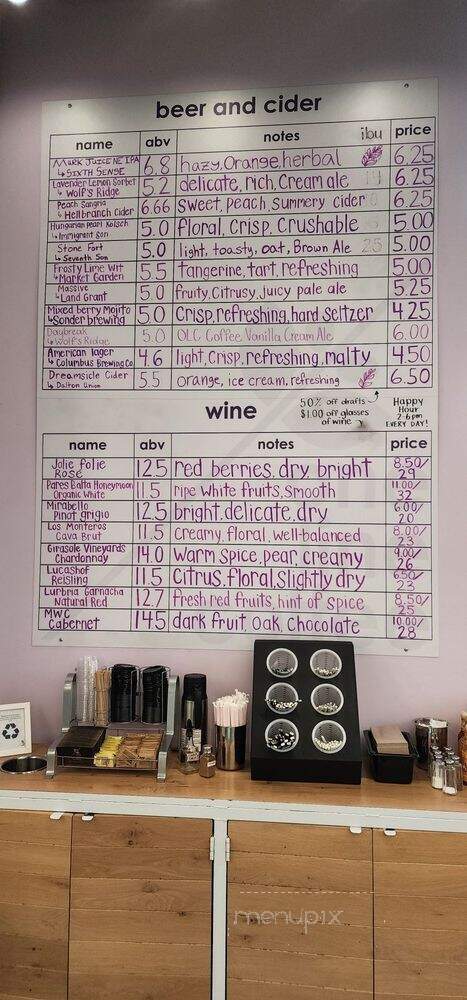 beer and cider
name abv notes ibu price
MARK JUICE NE IPA
↳ SIXTH SENSE 6.8 hazy, Orange, herbal 6.25
Lavender Lemon Sorbet
↳ Wolf's Ridge 5.2 delicate, rich, Cream ale 6.25
Peach Sangria
↳ Hellbranch Cider 6.66 Sweet, peach, Summery cider 6.25
Hungarian pearl Kolsch
↳ Immigrant Son 5.0 floral, Crisp, Crushable 5.00
Stone Fort
↳ Seventh Son 5.0 light, toasty, oat, Brown Ale 25 5.00
Frosty Lime Wit
↳ Market Garden 5.5 tangerine, tart, refreshing 5.00
Massive
↳ Land Grant 5.0 fruity, Citrusy, Juicy pale ale 5.25
Mixed berry Mojito
↳ Sonder brewing 5.0 Crisp, refreshing, hard seltzer 4.25
Daybreak
↳ Wolf's Ridge 5.0 OLC Coffee, Vanilla, Cream Ale 6.00
American lager
↳ Columbus Brewing Co. 4.6 light, Crisp, refreshing, malty 4.50
Dreamsicle Cider
↳ Dalton Union 5.5 orange, ice cream, refreshing 6.50
wine
50% off drafts
$1.00 off glasses
of wine
Happy
Hour
2-6pm
EVERY DAY!
name abv notes price
Jolie folie
Rosé 12.5 red berries, dry, bright 8.50/
29
Pares Balta Honeymoon
Organic White 11.5 ripe white fruits, smooth 11.00/
32
Mirabello
Pinot grigio 12.5 bright, delicate, dry 6.00/
20
Los Monteros
Cava Brut 11.5 Creamy, floral, well-balanced 8.00/
23
Girasole Vineyards
Chardonnay 14.0 Warm spice, pear, creamy 9.00/
26
Lucashof
Reisling 11.5 Citrus, floral, slightly dry 6.50/
23
Lurbria Garnacha
Natural Red 12.7 fresh red fruits, hint of spice 8.50/
25
MWC
Cabernet 14.5 dark fruit, oak, Chocolate 10.00/
28
menupix